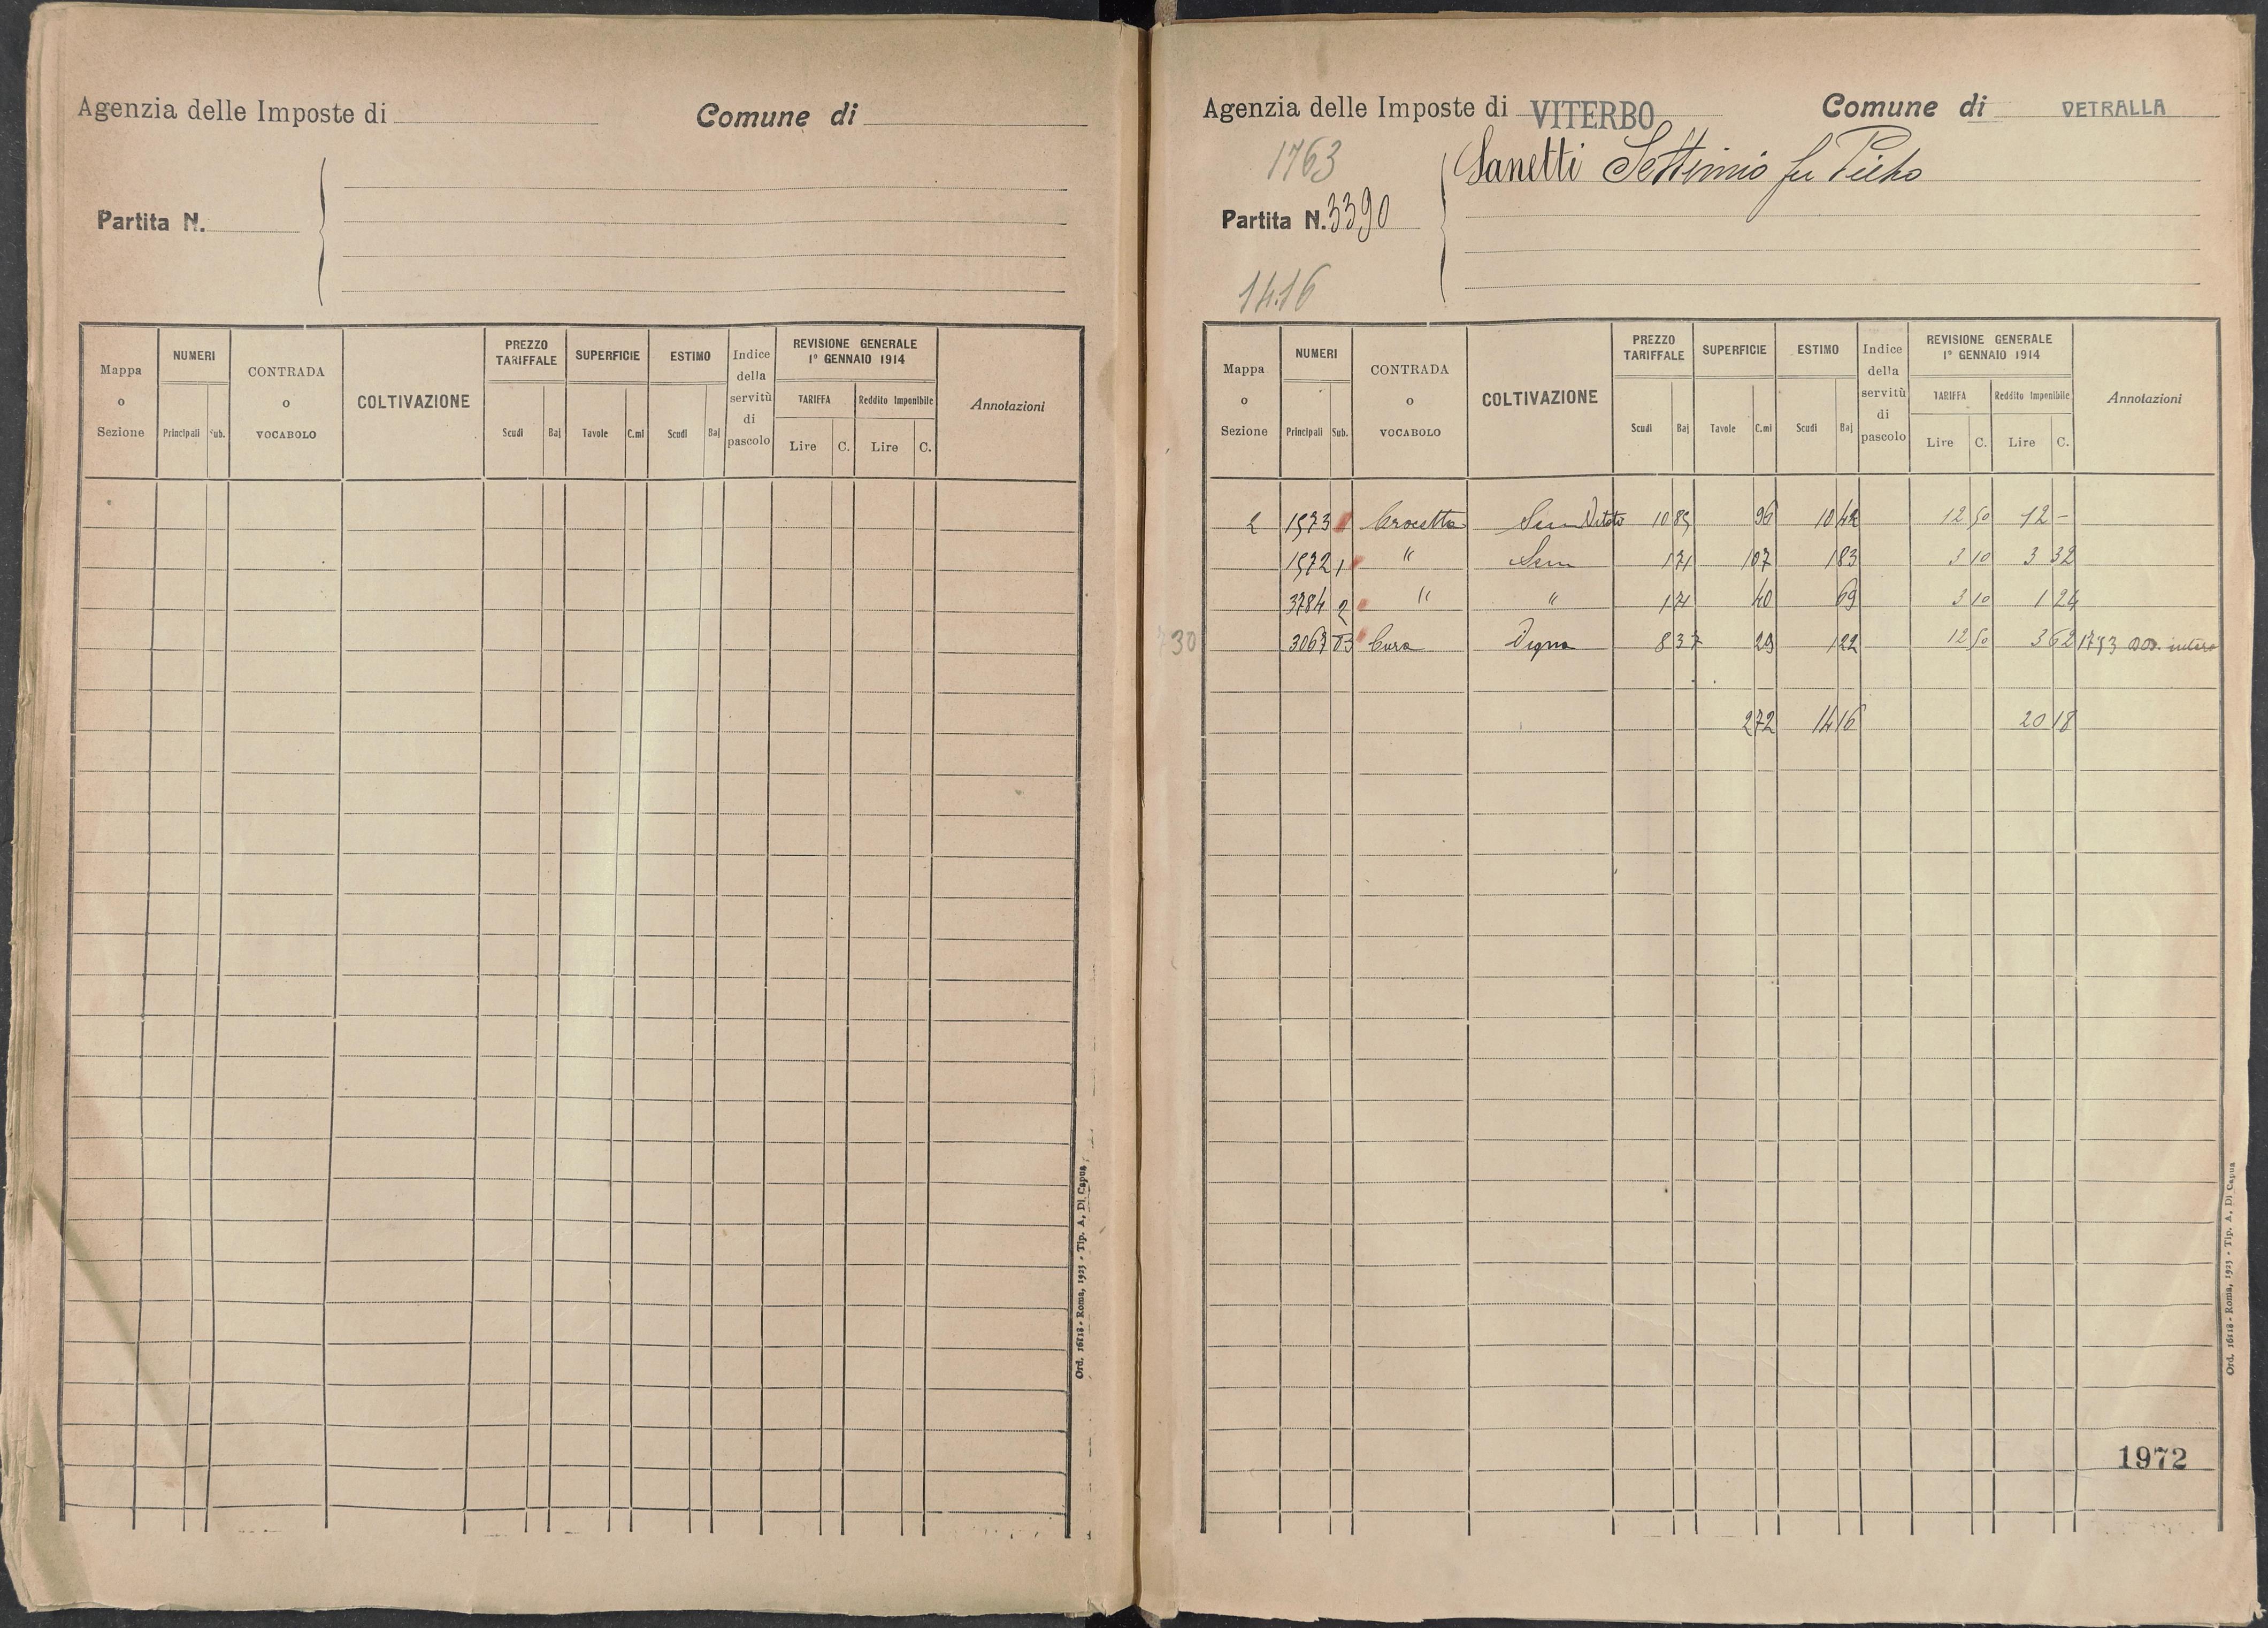 Agenzia delle Imposte di Comune di
Partita N.
Mappa o Sezione NUMERI CONTRADA o VOCABOLO COLTIVAZIONE PREZZO TARIFFALE SUPERFICIE ESTIMO Indice della servitù di pascolo REVISIONE GENERALE 1° GENNAIO 1914 Annotazioni
TARIFFA Reddito Imponibile
Principali Sub. Scudi Baj Tavole C.mi Scudi Baj Lire C. Lire C.
Ord. 16118 - Roma, 1923 - Tip. A. Di Capua
Agenzia delle Imposte di VITERBO Comune di VETRALLA
1763
Sanetti Settimio fu Pietro
Partita N. 3390
14.16
Mappa o Sezione NUMERI CONTRADA o VOCABOLO COLTIVAZIONE PREZZO TARIFFALE SUPERFICIE ESTIMO Indice della servitù di pascolo REVISIONE GENERALE 1° GENNAIO 1914 Annotazioni
TARIFFA Reddito Imponibile
Principali Sub. Scudi Baj Tavole C.mi Scudi Baj Lire C. Lire C.
2 1573 Crocetta Sem Vitato 10 85 96 10 42 12 50 12 -
1572 1 " Sem 1 71 1 07 1 83 3 10 3 32
3784 2 " " 1 71 40 69 3 10 1 24
30 3067 Cura Vigna 8 37 29 1 22 12 50 3 62 1793 intero
2 72 14 16 20 18
1972
Ord. 16118 - Roma, 1923 - Tip. A. Di Capua